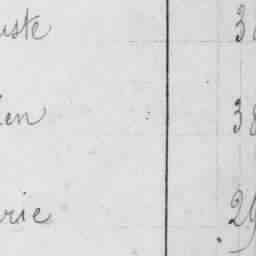 uste 3
en 38
rie 29